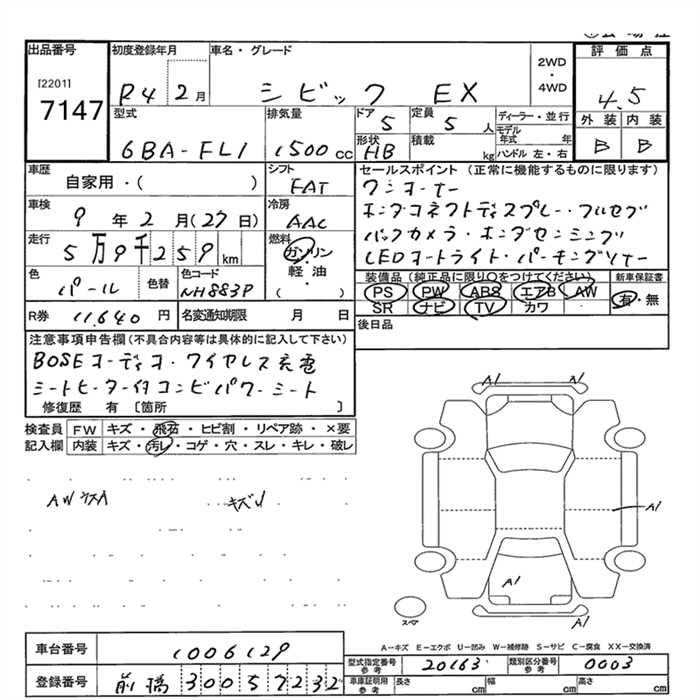 出品番号
[2201]
7147
初度登録年月
R4 2月
車名・グレード
シビック EX
2WD
・
4WD
評価点
4.5
外装 内装
B B
型式
6BA-FL1
排気量
1500cc
ドア
5
定員
5人
形状
HB
積載
kg
ディーラー・並行
モデル年式 年
ハンドル 左・右
車歴
自家用・( )
シフト
FAT
車検
9年2月(27日)
冷房
AAC
走行
5万9千259km
燃料
ガソリン
・
軽油
( )
色
パール
色替
色コード
NH883P
R券
11,640円
名変通知期限 月 日
セールスポイント(正常に機能するものに限ります)
ワンオーナー
ホンダコネクトディスプレー・フルセグ
バックカメラ・ホンダセンシング
LEDオートライト・パーキングソナー
装備品(純正品に限り○をつけてください)
PS PW ABS エアB AW
SR ナビ TV カワ
新車保証書
有・無
後日品
注意事項申告欄(不具合内容等は具体的に記入して下さい)
BOSEオーディオ・ワイヤレス充電
シートヒーター付コンビパワーシート
修復歴 有 [箇所 ]
検査員 FW キズ・飛石・ヒビ割・リペア跡・×要
記入欄 内装 キズ・汚レ・コゲ・穴・スレ・キレ・破レ
AWウスA
キズリ
A1
A1
A1
A1
スペア
A-キズ E-エクボ U-凹み W-補修跡 S-サビ C-腐食 XX-交換済
車台番号
1006129
登録番号
前橋 300 5 7232
型式指定番号
参考
20163
類別区分番号
参考
0003
車庫証明用
参考
長さ cm
幅 cm
高さ cm